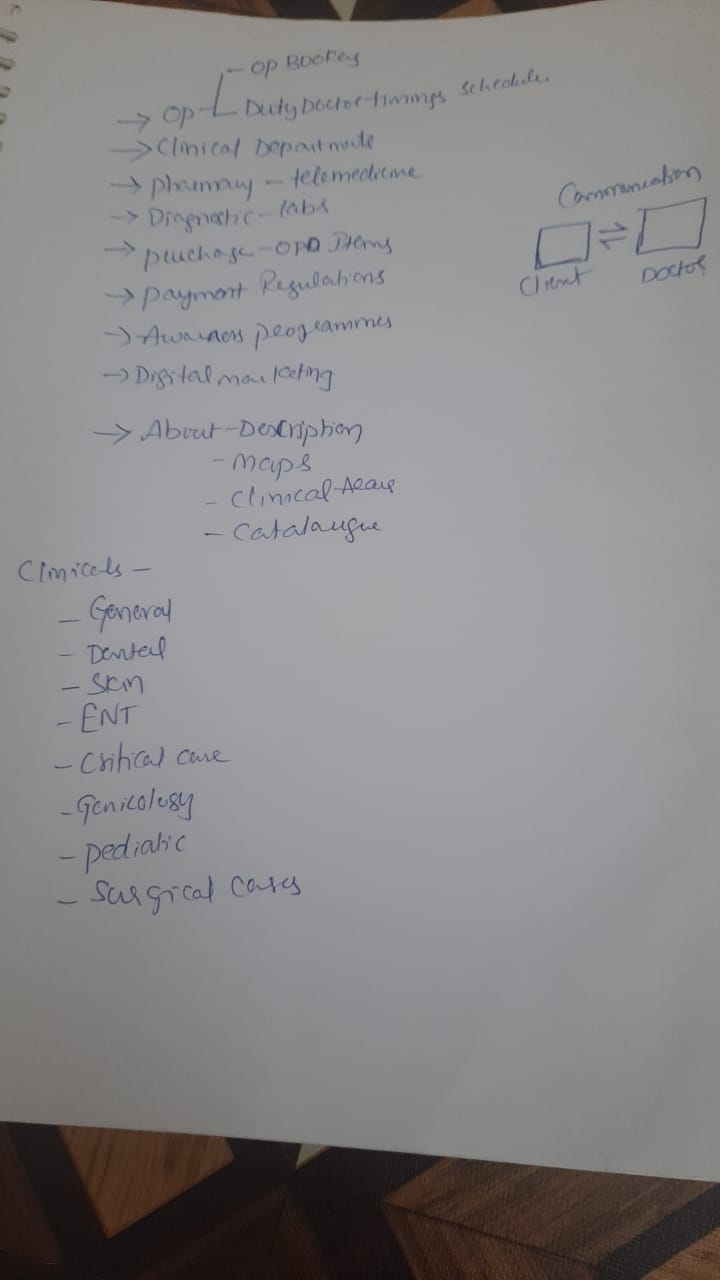 - OP Bookes
→ OP - Duty Doctor timings schedule.
→ Clinical Departments
→ pharmacy - telemedicine
→ Diagnostic - labs
→ purchase - OPD Items
→ payment Regulations
→ Awarness programmes
→ Digital marketing
Communication
⇌
Client
Doctor
→ About - Description
- Maps
- Clinical Areas
- Catalaugue
Clinicals -
- General
- Dental
- Skin
- ENT
- Critical care
- Genicology
- pediatic
- Surgical cases